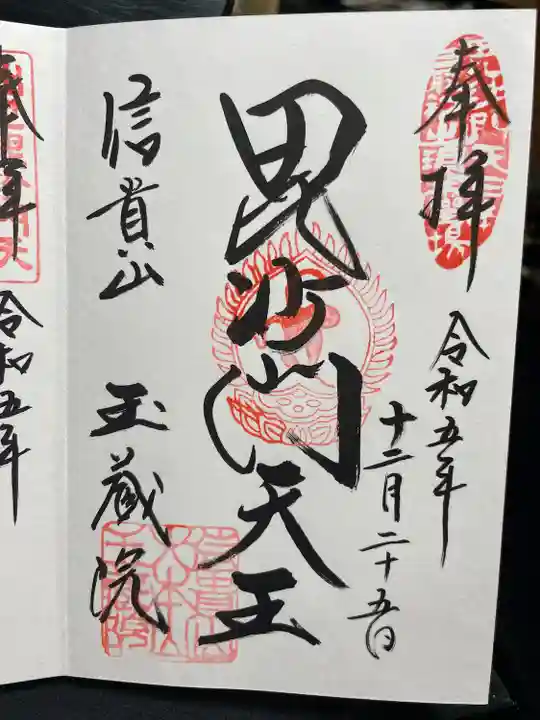 奉拝
令和五年
十二月二十五日
毘沙門天王
信貴山 玉蔵院
奉拝
令和五年